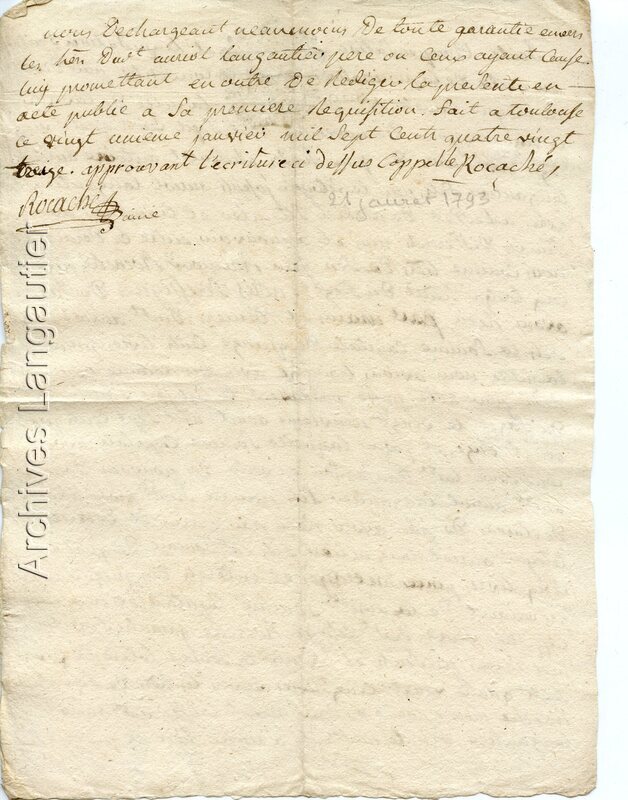 nous Dechargeant neanmoins De toute garantie envers
les Langautier pere ou Ceux ayant Cause.
luy promettant en outre De Rediger la presente en
acte publié a Sa premiere Requisition. Fait a toulouse
ce vingt unieme janvier mil Sept Cent quatre vingt
treize. approuvant l'ecriture ci dessus Cappelle Rocachés
Rocaches
21 janvier 1793
Archives Langautier